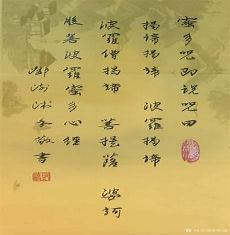 蜜多咒即说咒曰
揭谛揭谛 波罗揭谛
波罗僧揭谛 菩提萨婆诃
般若波罗蜜多心经
敬书